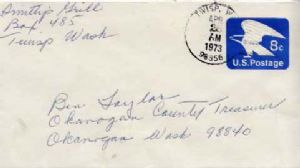 Smith's Grill
Box 485
Twisp Wash
TWISP, W
APR
AM
1973
98356
8c
U.S. Postage
Ben Taylor
Okanogan County Treasurer
Okanogan Wash 98840